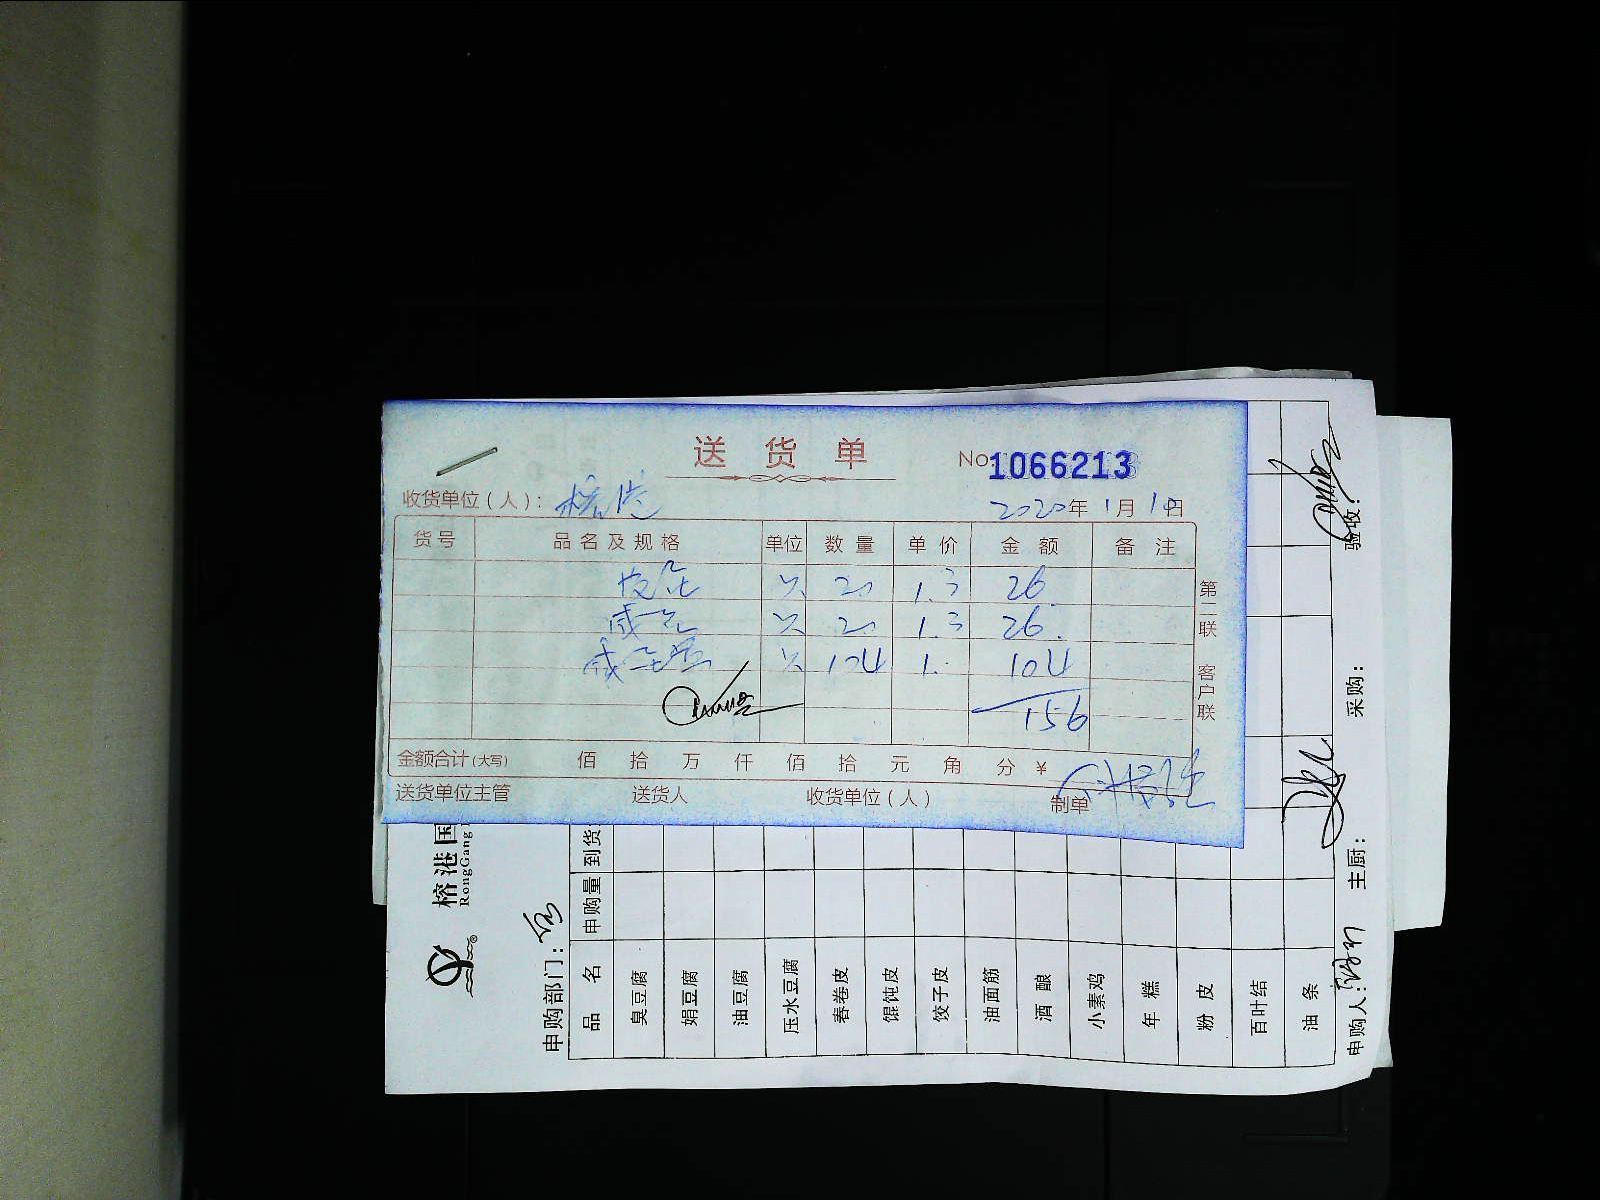 送 货 单
No.1066213
收货单位(人): 榕港
2020年 1月 18日
货号 品名及规格 单位 数量 单价 金额 备注
皮蛋 只 20 1.3 26
咸蛋 只 20 1.3 26.
咸蛋黄 只 104 1. 104
156
第二联 客户联
金额合计(大写) 佰 拾 万 仟 佰 拾 元 角 分 ¥
送货单位主管 送货人 收货单位(人) 制单
榕港国
RongGang
申购部门:
品 名 申购量 到货
臭豆腐
娟豆腐
油豆腐
压水豆腐
春卷皮
馄饨皮
饺子皮
油面筋
酒 酿
小素鸡
年 糕
粉 皮
百叶结
油 条
申购人: 主厨: 采购: 验收: